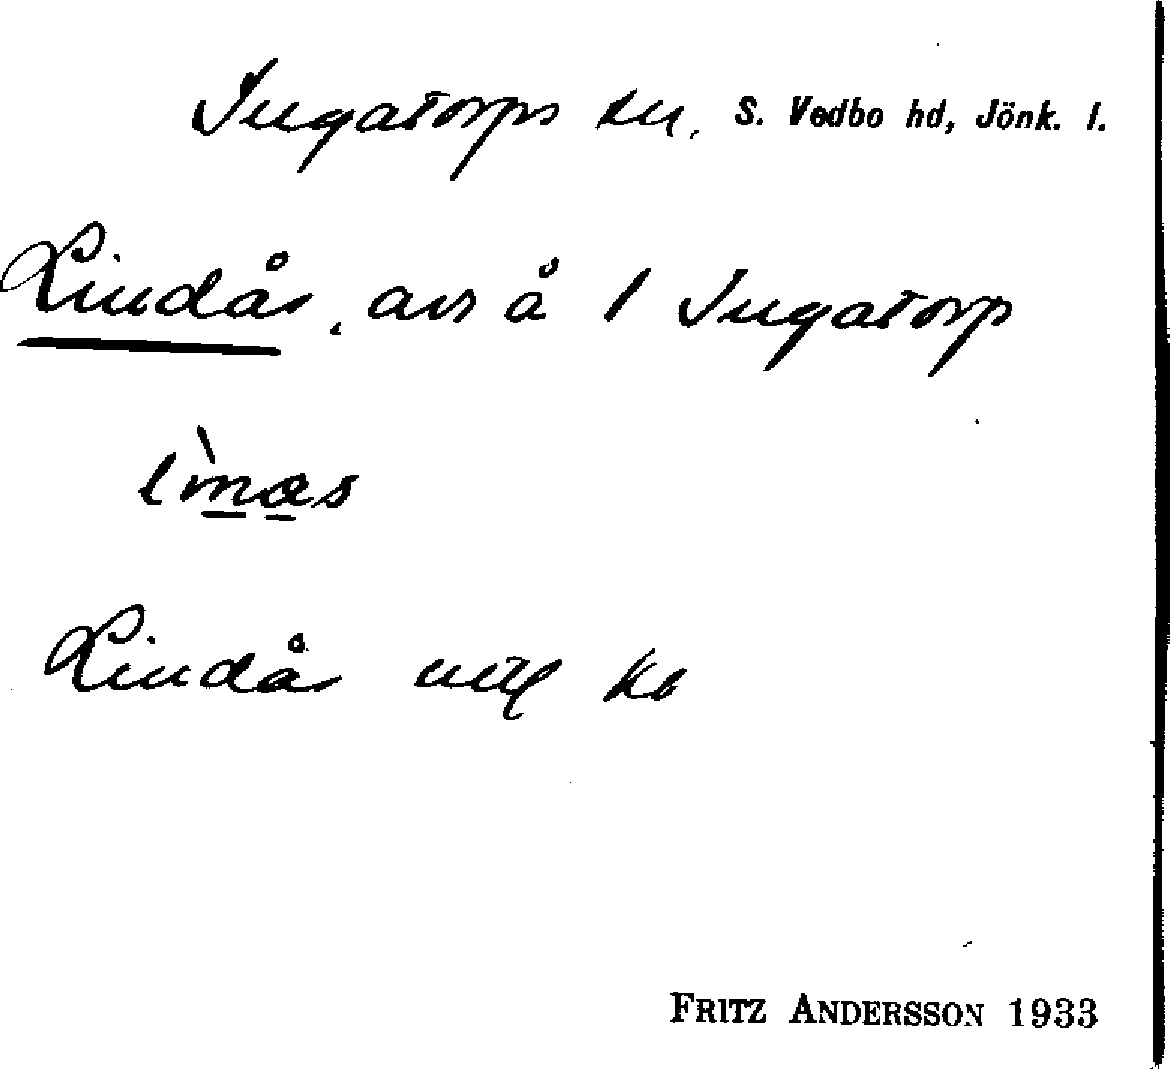 Ingatorps sn, S. Vedbo hd, Jönk. l.
Lindås, avs å 1 Ingatorp
lìnas
Lindås
FRITZ ANDERSSON 1933